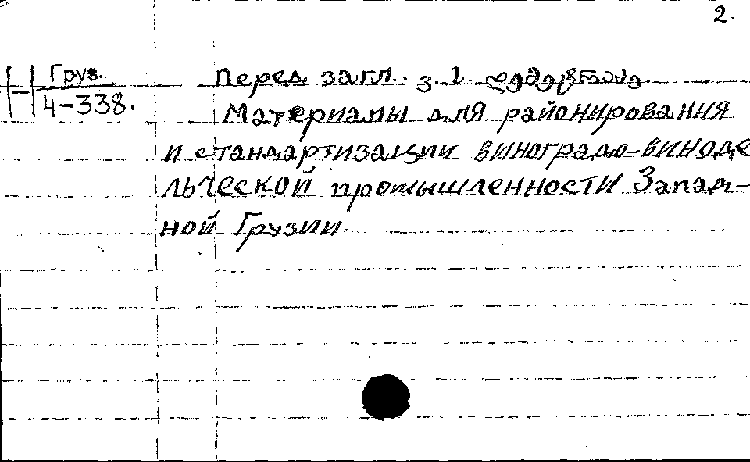 2.
Груз.
4-338.
Перед загл. з. 1
Материалы для районирования
и стандартизации виноградо-виноде
льческой промышленности Запад-
ной Грузии